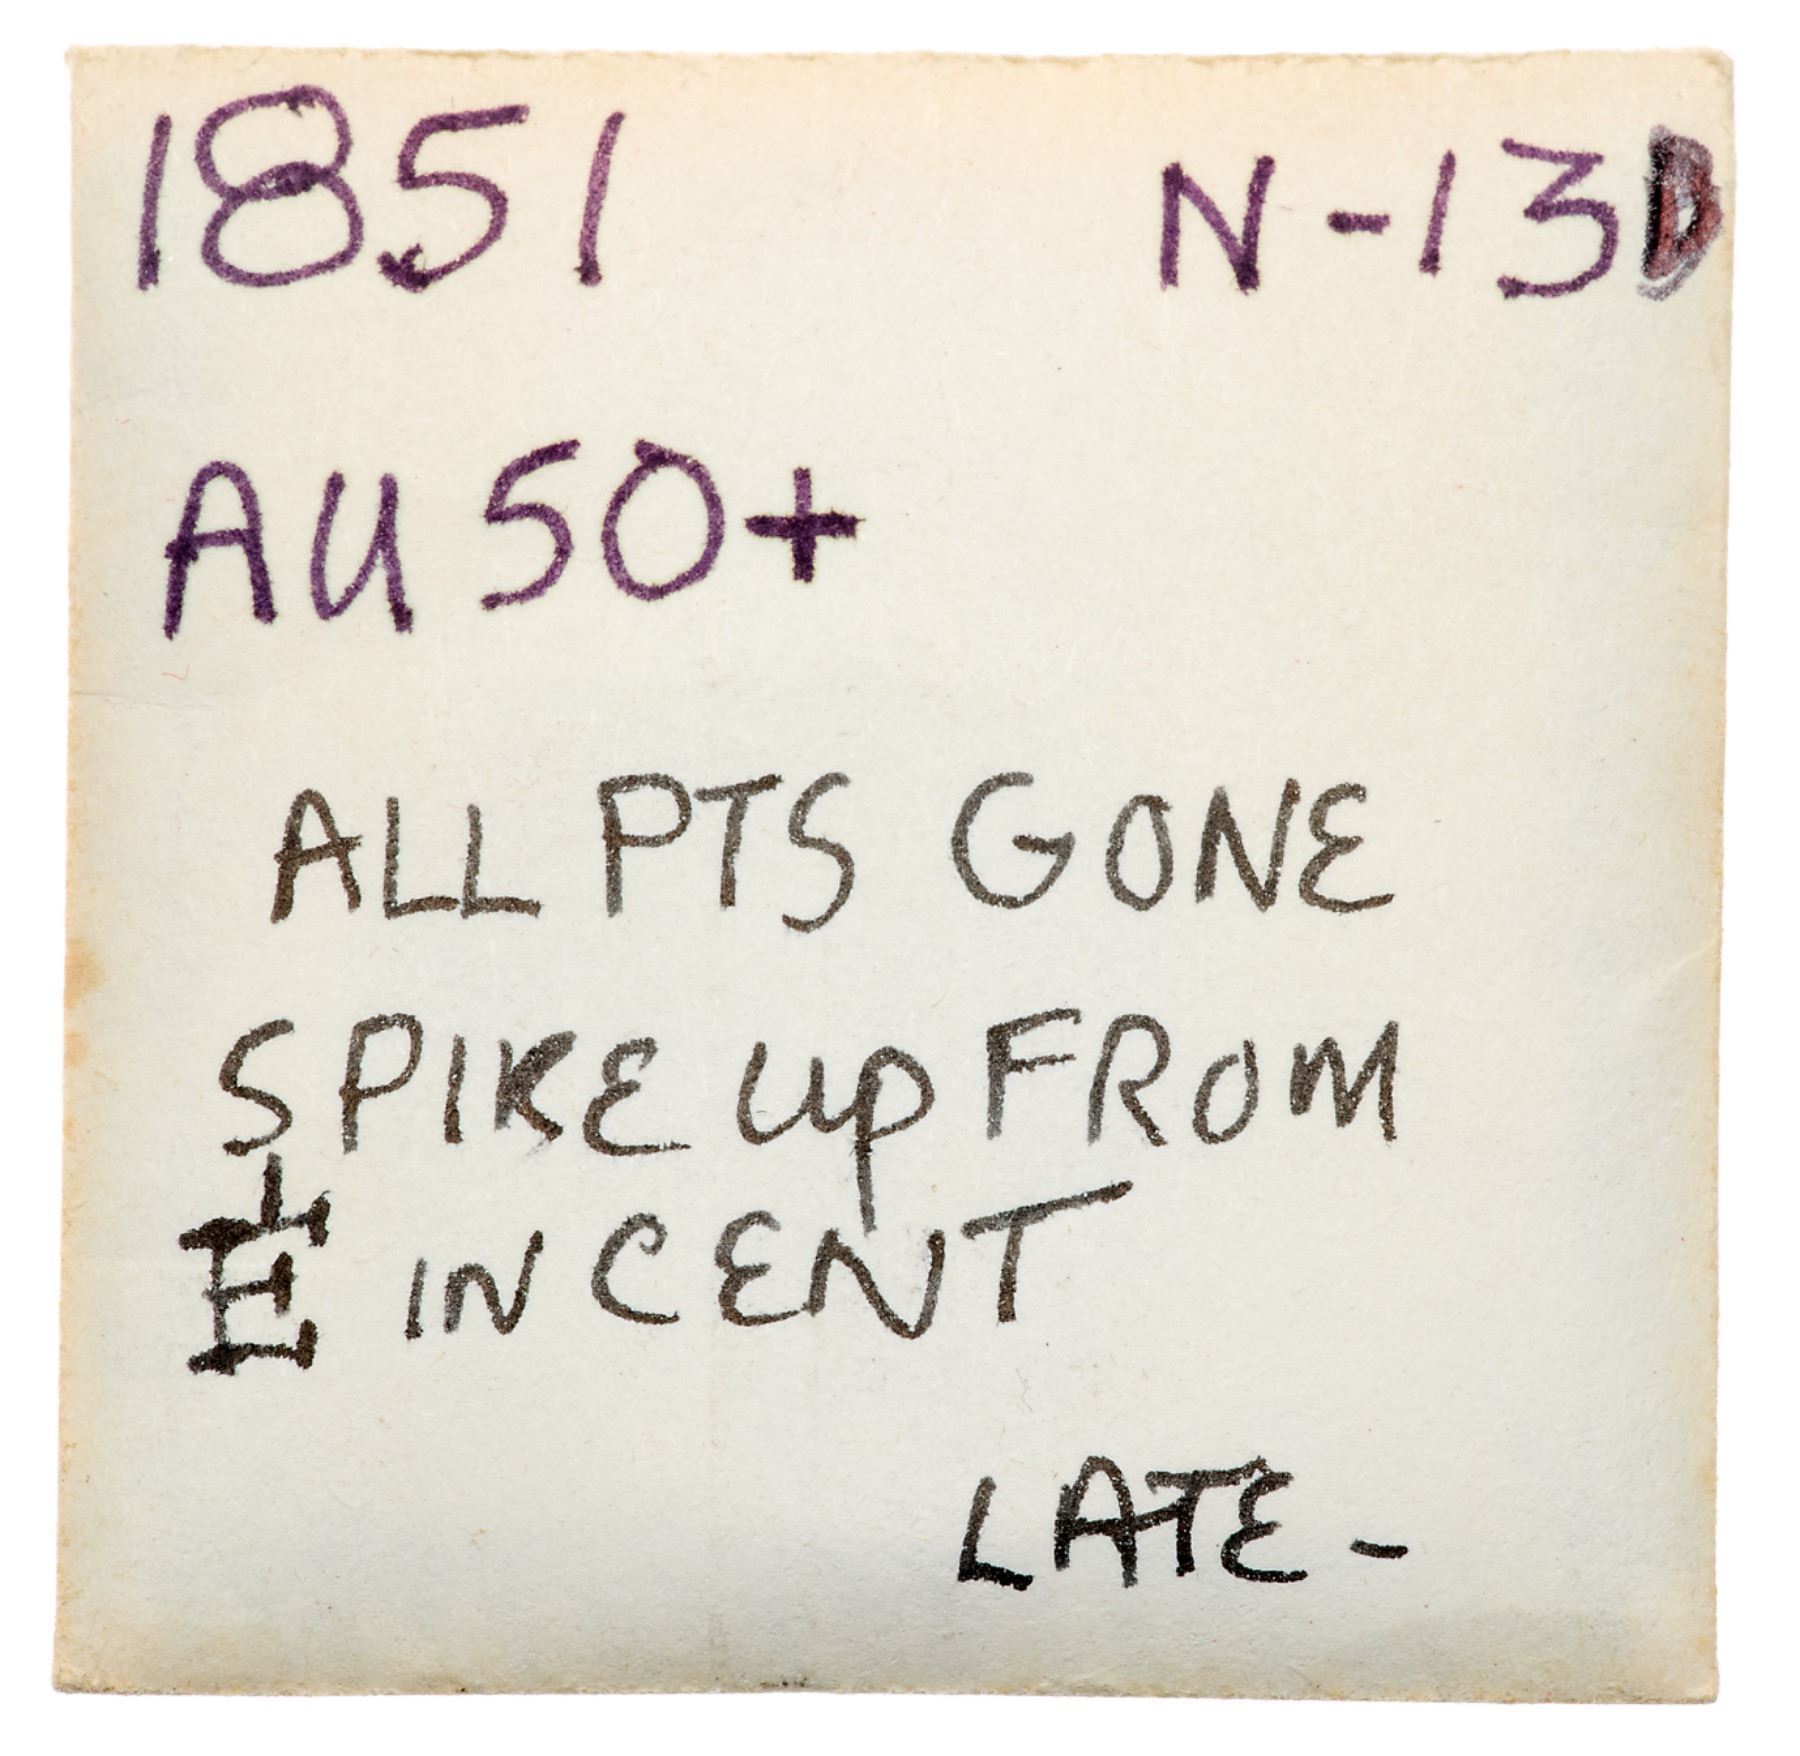 1851 N-13D
AU 50+
ALL PTS GONE
SPIKE UP FROM
E IN CENT
LATE-